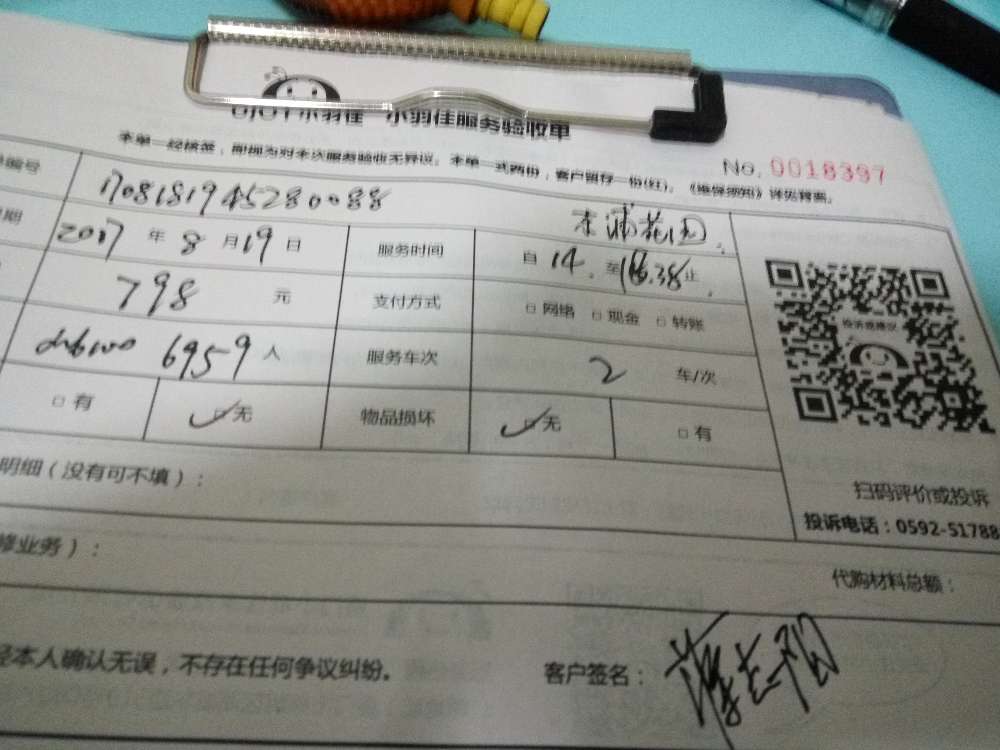 小羽佳服务验收单
本单一经核签，即视为对本次服务验收无异议。本单一式两份，客户留存一份(红)。《维保须知》详见背面。
No. 0018397
编号 1708181945280088
期 2017 年 8 月 19 日 服务时间 自 14 至 16.38 止
798 元 支付方式 □ 网络 □ 现金 □ 转账
6959 人 服务车次 2 车/次
□ 有 ✓ □ 无 物品损坏 ✓ □ 无 □ 有
投诉或建议
扫码评价或投诉
投诉电话：0592-51788
明细（没有可不填）：
修业务）：
代购材料总额：
经本人确认无误，不存在任何争议纠纷。 客户签名：